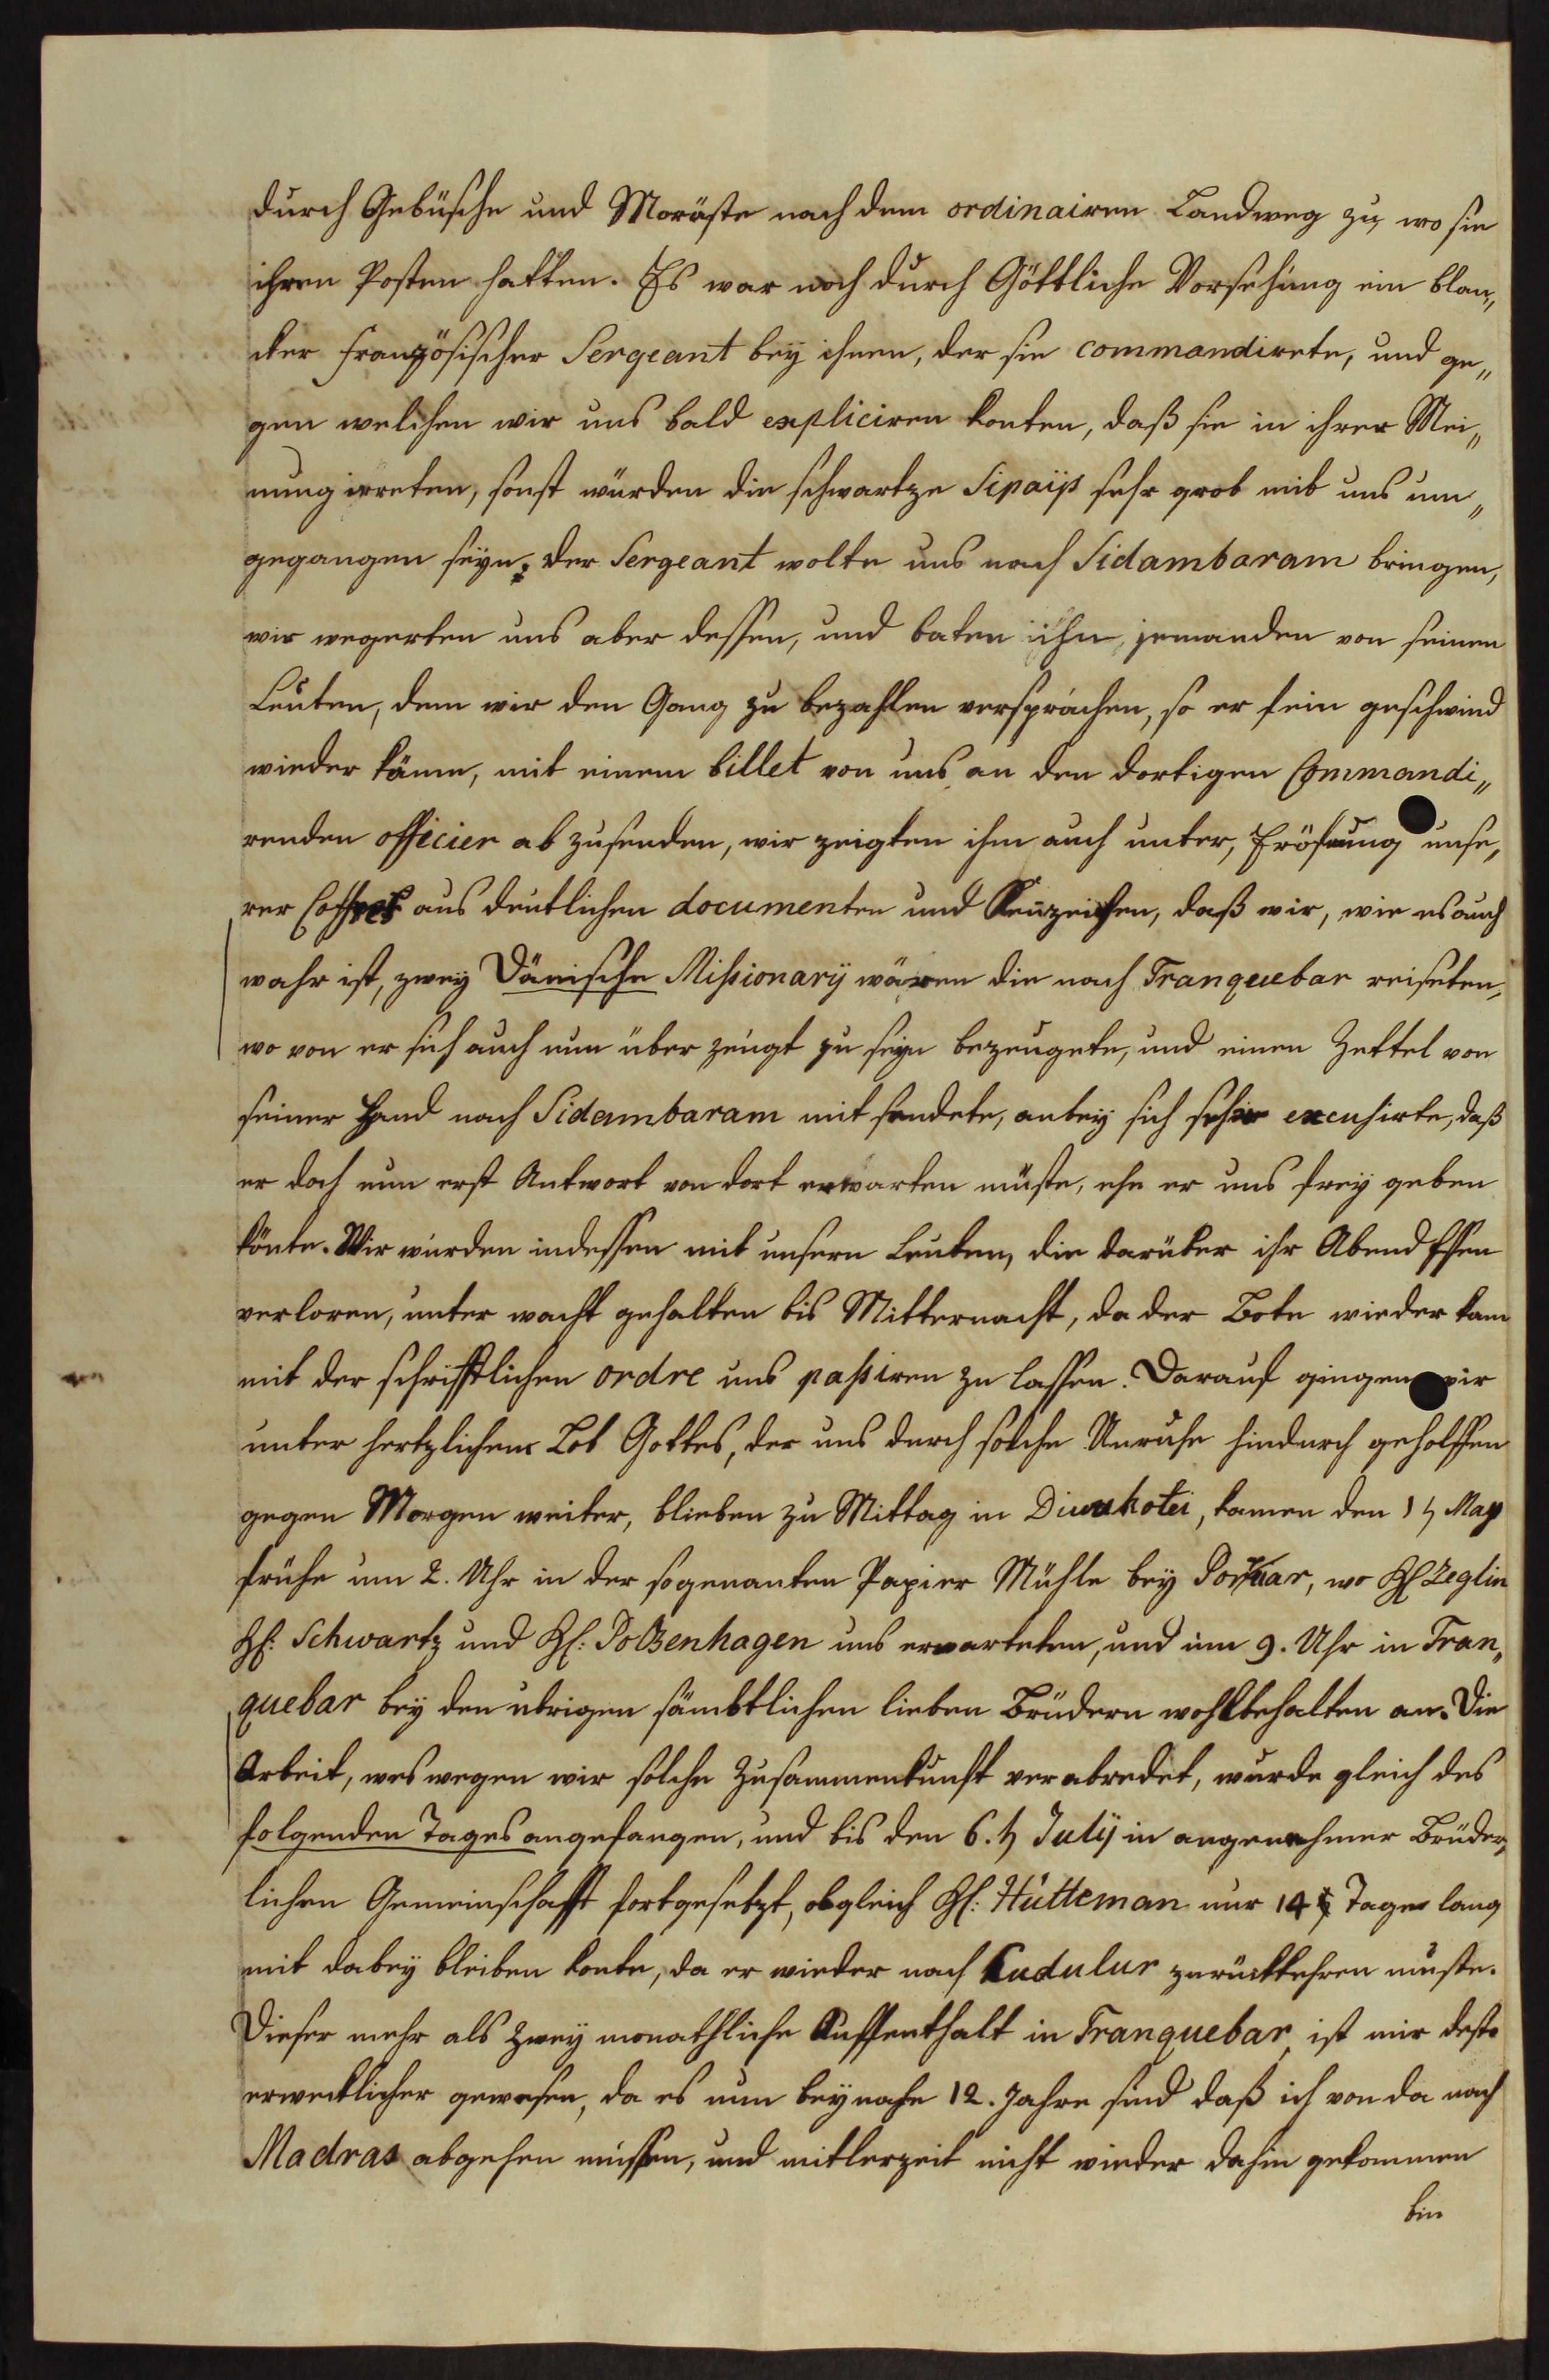 durch Gebüsche und Moräste nach dem ordinairen Landweg zu, wo sie
ihren Posten hatten. Es war noch durch Göttliche Vorsehung ein blan„
cker französischer Sergeant bey ihnen, der sie commandirete, und ge„
gen welchen wir uns bald expliciren konten, daß sie in ihrer Mei„
nung irreten, sonst würden die schwartze Sipaijs sehr grob mit uns um„
gegangen seyn; der Sergeant wolte uns nach Sidambaram bringen,
wir wegerten uns aber dessen, und baten ihn, jemanden von seinen
Leuten, dem wir den Gang zu bezahlen versprachen, so er fein geschwind
wieder käme, mit einem billet von uns an den dortigen Commandi„
renden officier abzusenden, wir zeigten ihm auch unter, Eröfnung unse„
rer Coffres aus deutlichen documenten und Kenzeichen, daß wir, wie es auch
wahr ist, zwey Dänische Missionarij wären die nach Tranquebar reiseten,
wo von er sich auch nun über zeugt zu seyn bezeugete, und einen Zettel von
seiner Hand nach Sidambaram mit sendete, anbey sich sehr excusirte, daß
er doch nun erst Antwort von dort erwarten müste, ehe er uns frey geben
könte. Wir wurden indessen mit unsern Leuten, die darüber ihr Abend Essen
verloren, unter wacht gehalten bis Mitternacht, da der Bote wieder kam
mit der schrifftlichen ordre uns passiren zu lassen. Darauf gingen wir
unter hertzlichem Lob Gottes, der uns durch solche Unruhe hindurch geholffen
gegen Morgen weiter, blieben zu Mittag in Diwukotei, kamen den 1 t May
frühe um 2. Uhr in der sogenanten Papier Mühle bey Poriuar, wo H Zeglin
H: Schwartz und H: Polzenhagen uns erwarteten, und um 9. Uhr in Tran„
quebar bey den übrigen sämbtlichen lieben Brüdern wohlbehalten an. Die
Arbeit, weswegen wir solche Zusammenkunft verabredet, wurde gleich des
folgenden Tages angefangen, und bis den 6. t July in angenehmer Brüder„
lichen Gemeinschafft fortgesetzt, obgleich H: Hütteman nur 14 Tage lang
mit dabey bleiben konte, da er wieder nach Cudulur zurückkehren muste.
Dieser mehr als zwey monathliche Auffenthalt in Tranquebar, ist mir desto
erwecklicher gewesen, da es nun beynahe 12. Jahre sind daß ich von da nach
Madras abgehen müssen, und mitlerzeit nicht wieder dahin gekommen
bin